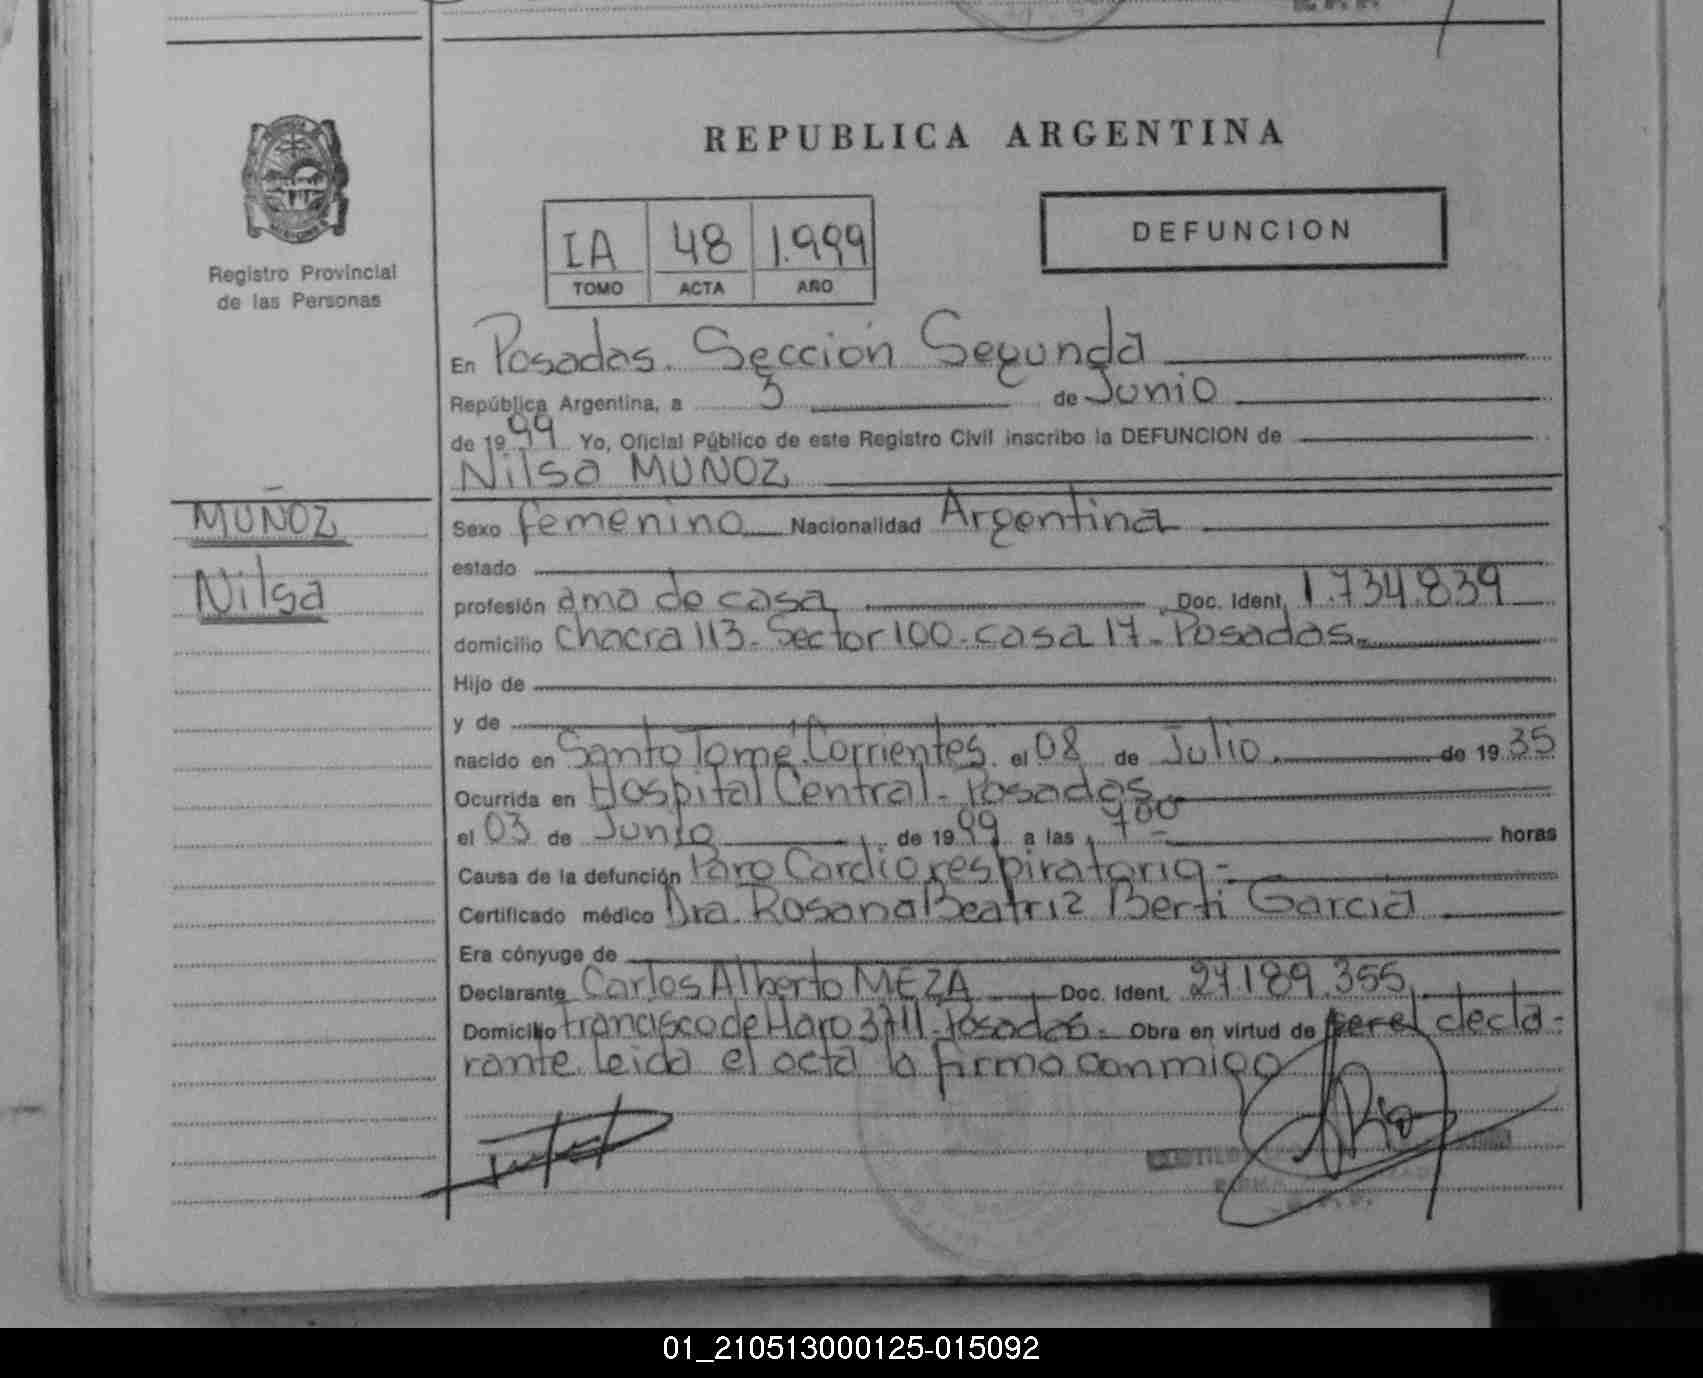 REPUBLICA ARGENTINA
Registro Provincial
de las Personas
IA 48 1.999
TOMO ACTA AÑO
DEFUNCION
En Posadas. Sección Segunda
República Argentina, a 3 de Junio
de 1999 Yo, Oficial Público de este Registro Civil inscribo la DEFUNCION de
Nilsa MUNOZ
MUÑOZ
Nilsa
Sexo femenino Nacionalidad Argentina
estado
profesión ama de casa Doc. Ident. 1.734.839
domicilio chacra 113-Sector 100-casa 17-Posadas-
Hijo de
y de
nacido en Santo Tomé, Corrientes. el 08 de Julio de 1935
Ocurrida en Hospital Central-Posadas
el 03 de Junio de 1999 a las 7- horas
Causa de la defunción Paro Cardiorespiratorio-
Certificado médico Dra. Rosana Beatriz Berti Garcia
Era cónyuge de
Declarante Carlos Alberto MEZA Doc. Ident. 27.189.355
Domicilio francisco de Haro 3711-Posadas- Obra en virtud de ser el decla-
rante. leida el acta la firma conmigo
01_210513000125-015092